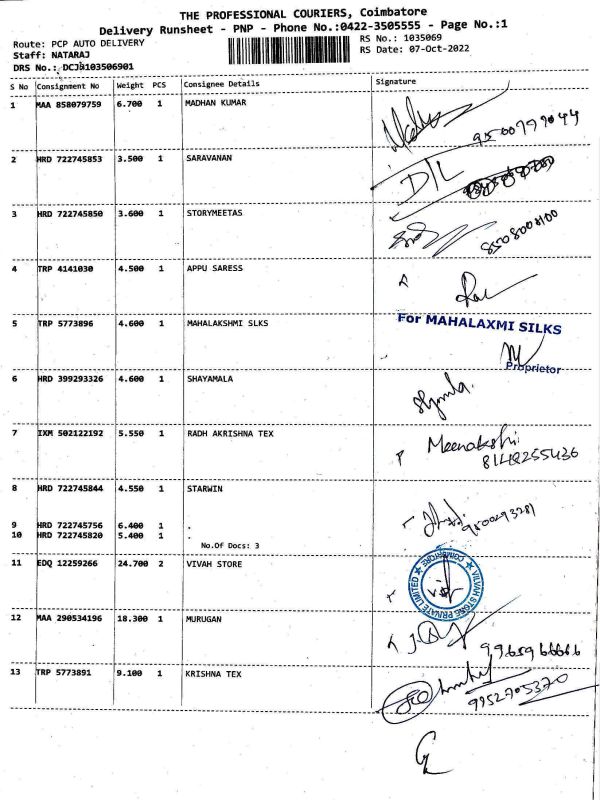 THE PROFESSIONAL COURIERS, Coimbatore
Delivery Runsheet - PNP - Phone No.:0422-3505555 - Page No.:1
Route: PCP AUTO DELIVERY
RS No.: 1035069
Staff: NATARAJ
RS Date: 07-Oct-2022
DRS No.: DCJB103506901
S No Consignment No Weight PCS Consignee Details Signature
1 MAA 858079759 6.700 1 MADHAN KUMAR
9500799044
2 HRD 722745853 3.500 1 SARAVANAN
D/L
3 HRD 722745850 3.600 1 STORYMEETAS
8508008100
4 TRP 4141030 4.500 1 APPU SARESS
5 TRP 5773896 4.600 1 MAHALAKSHMI SLKS
For MAHALAXMI SILKS
Proprietor
6 HRD 399293326 4.600 1 SHAYAMALA
7 IXM 502122192 5.550 1 RADH AKRISHNA TEX
Meenakshi
8148255436
8 HRD 722745844 4.550 1 STARWIN
9500293281
9 HRD 722745756 6.400 1 .
10 HRD 722745820 5.400 1 .
No.Of Docs: 3
11 EDQ 12259266 24.700 2 VIVAH STORE
VILVAH STORE PRIVATE LIMITED ★ COIMBATORE ★
12 MAA 290534196 18.300 1 MURUGAN
9965966666
13 TRP 5773891 9.100 1 KRISHNA TEX
9952705370